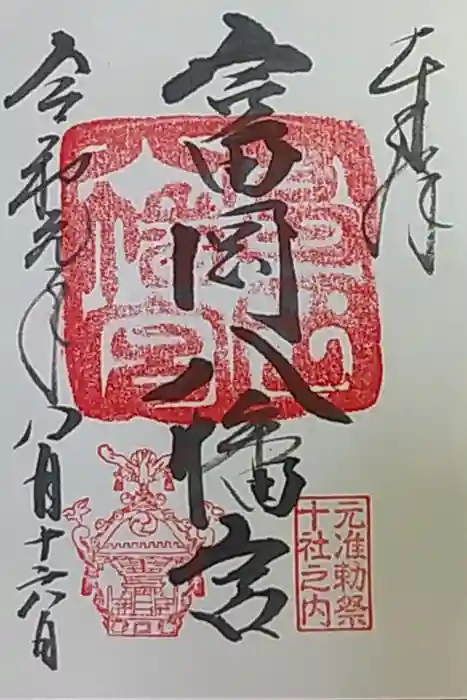 奉拝
富岡八幡宮
元准勅祭
十社之内
令和元年八月十六日